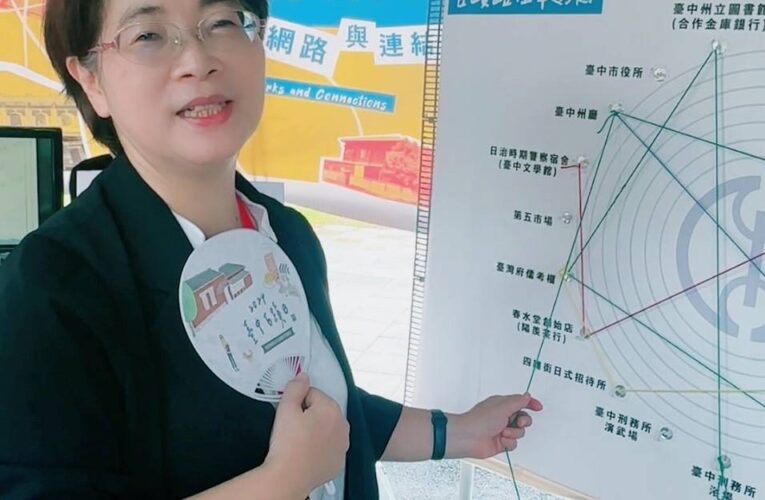 網路與連結
rks and Connections
臺中州立圖書館
(合作金庫銀行)
臺中市役所
臺中州廳
日治時期警察宿舍
(臺中文學館)
第五市場
臺灣府儒考棚
春水堂創始店
(陽羨茶行)
四維街日式招待所
臺中刑務所
演武場
臺中刑務所
浴場